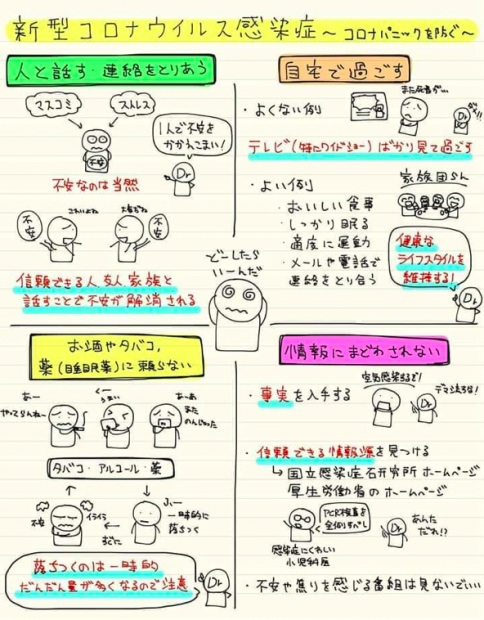 新型コロナウイルス感染症～コロナパニックを防ぐ～
人と話す・連絡をとりあう
マスコミ
ストレス
不安
1人で不安を
かかえこまい!
Dr
不安なのは当然
不安
こわいよね
大変だね
不安
信頼できる人、友人、家族と
話すことで不安が解消される
どーしたら
いーんだ
自宅で過ごす
・よくない例
また死者が…
Dr
テレビ(特にワイドショー)ばかり見て過ごす
・よい例
・おいしい食事
・しっかり眠る
・適度に運動
・メールや電話で
連絡をとり合う
家族団らん
健康な
ライフスタイルを
維持する!
Dr
お酒やタバコ,
薬(睡眠薬)に頼らない
あー
やってらんねー
うまい
あーあ
また
のんじゃった
タバコ・アルコール・薬
不安
イライラ
すぐに
ふー
一時的に
落ちつく
落ちつくのは一時的
だんだん量が多くなるので注意
Dr
情報にまどわされない
・事実を入手する
空気感染するぞ!
デマ流すな!
Dr
・信頼できる情報源を見つける
↳国立感染症研究所ホームページ
厚生労働省のホームページ
PCR検査を
全例すべし
感染症にくわしい
小児科医
Dr
あんた
だれ!?
・不安や焦りを感じる番組は見ないでいい